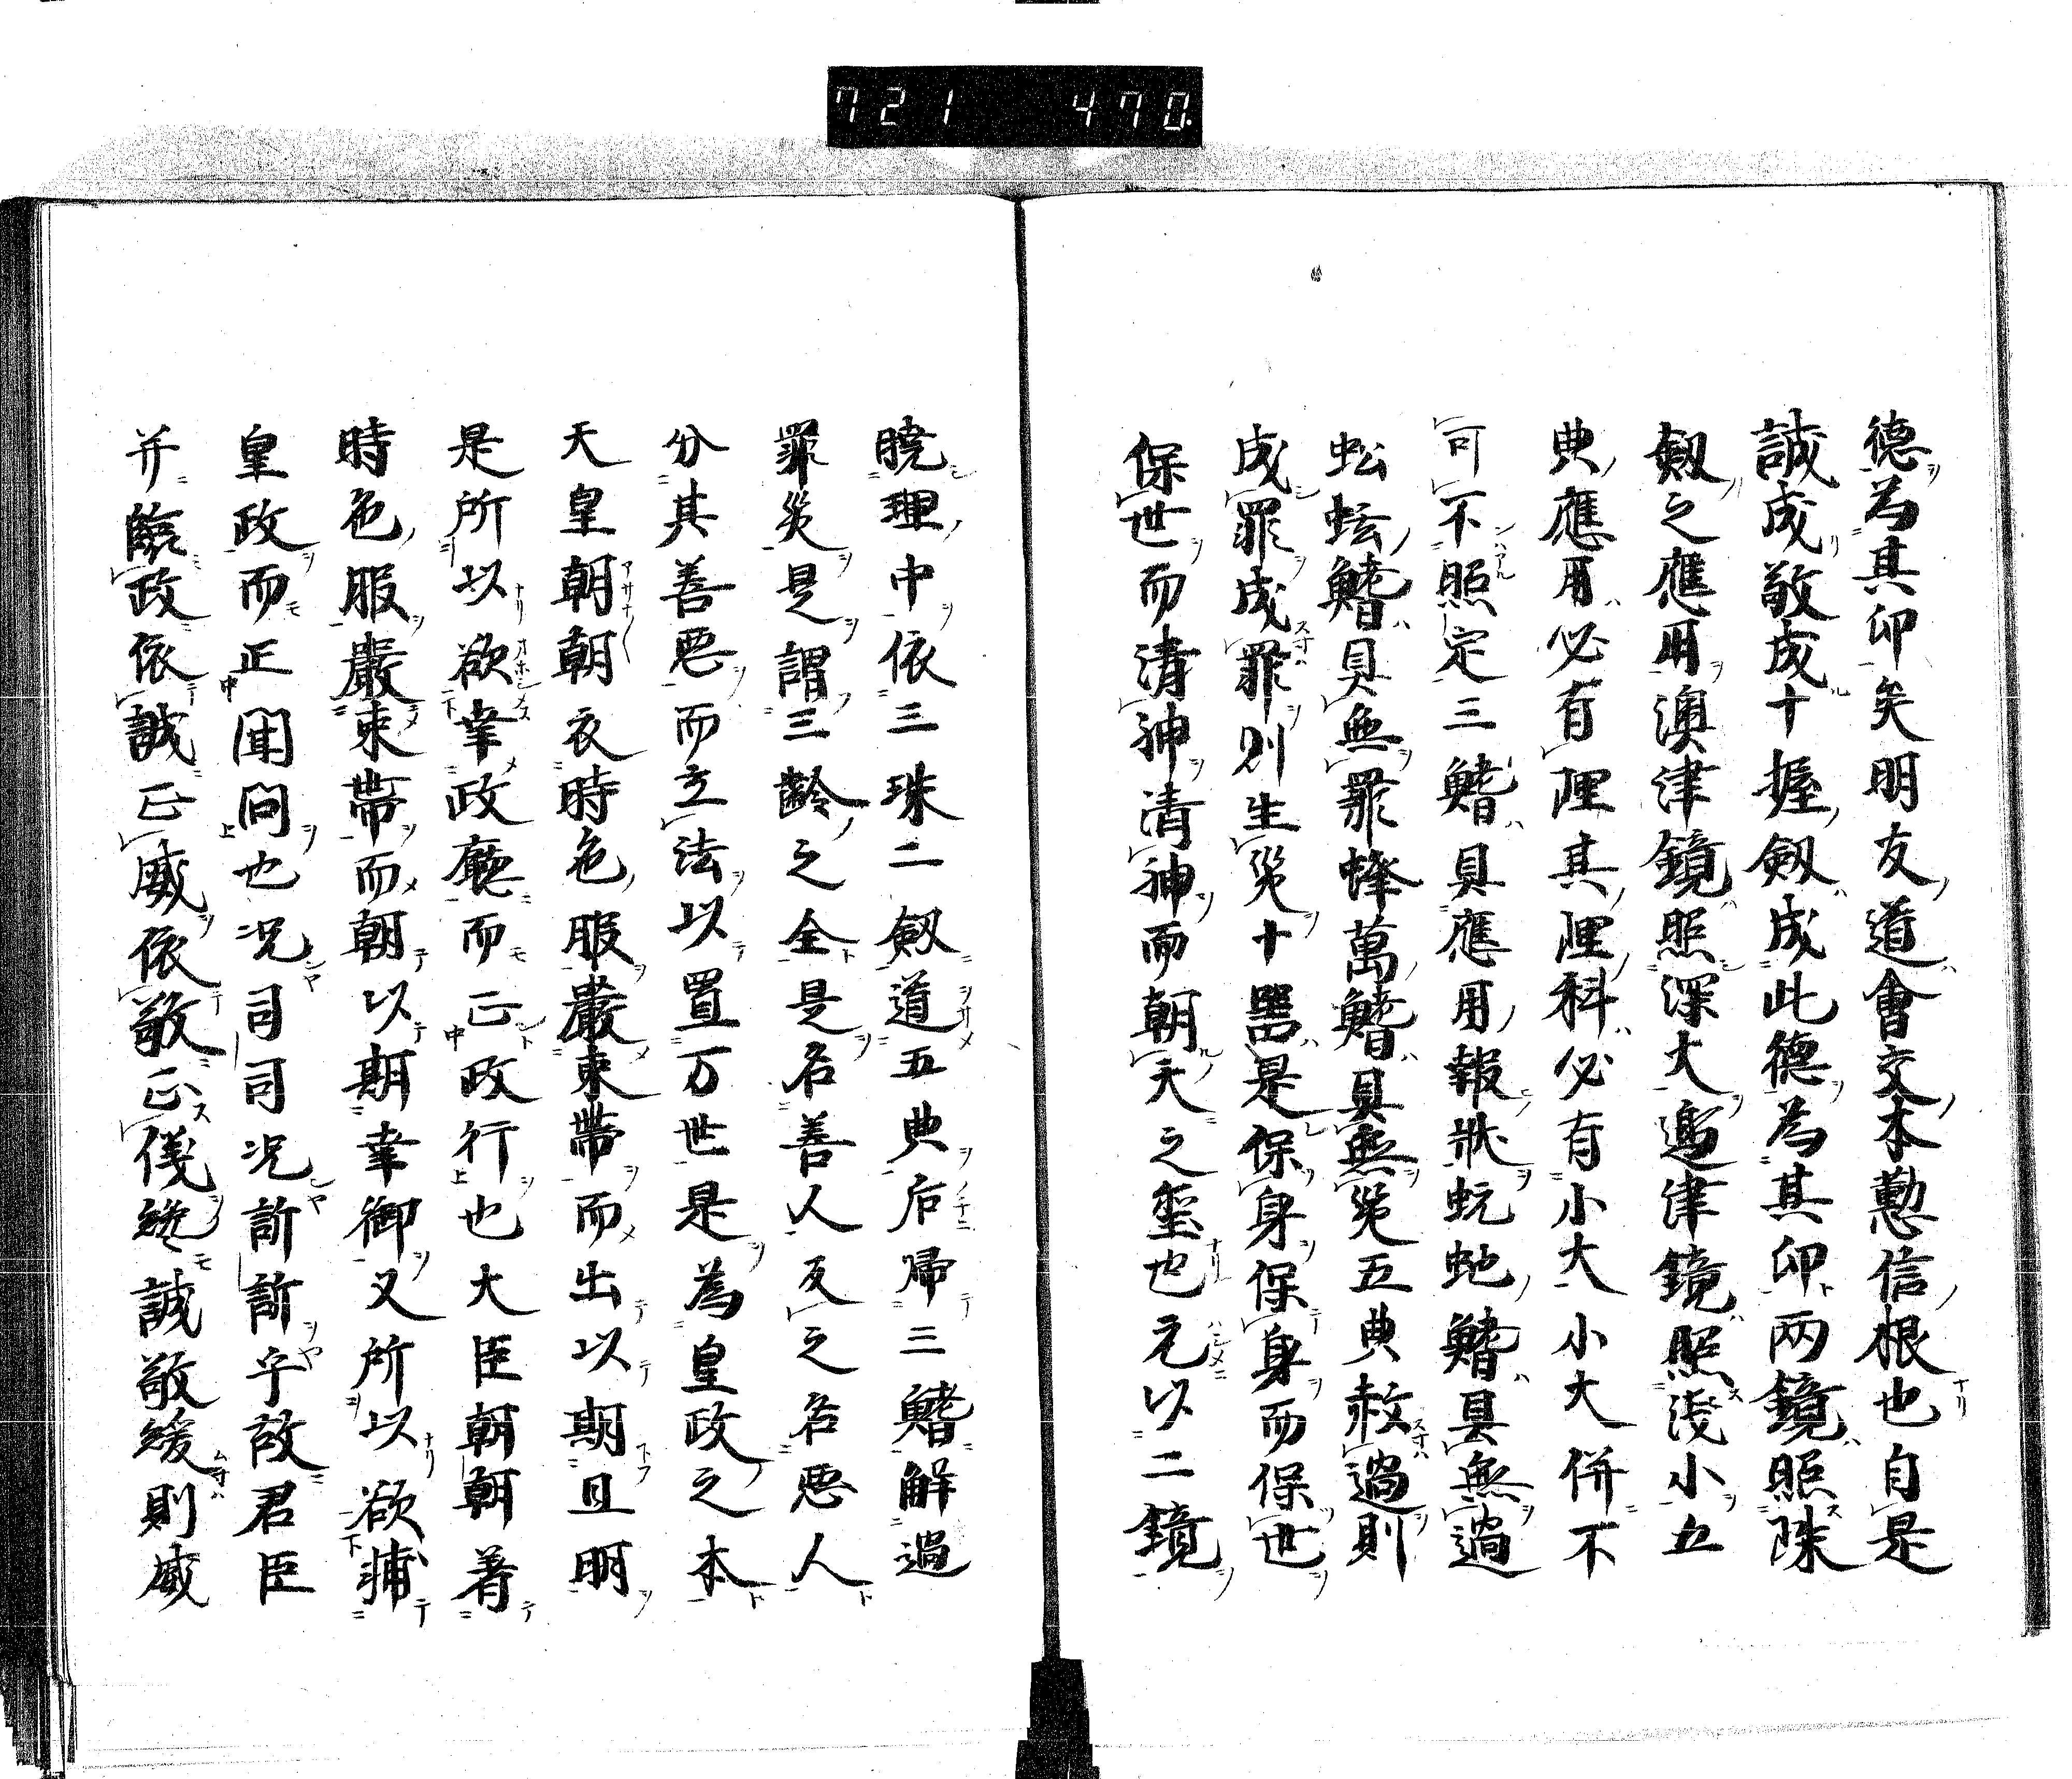 721 470
德為其印矣明友道會交本懃信根也自是
誠成敬成十握劔成此德為其印兩鏡照珠
劔之應用澳津鏡照深大邉津鏡照淺小五
典應用必有理其理科必有小大小大併不
可不照定三鰭具應用報狀蚖虵鰭具無過
蚣蚿鰭具無罪蜂萬鰭具無災五典赦過則
成罪成罪則生災十噐是保身保身而保世
保世而清神清神而朝天之璽也元以二鏡
曉理中依三珠二劔道五典后帰三鰭解過
罪災是謂三齡之全是名善人反之名惡人
分其善惡而立法以置万世是為皇政之本
天皇朝朝衣時色服嚴束帶而出以期且明
是所以欲幸政廳而正政行也大臣朝朝着
時色服嚴束帶而朝以期幸御又所以欲輔
皇政而正聞問也况司司况訢訢乎故君臣
并臨政依誠正威依敬正儀緃誠敬緩則威